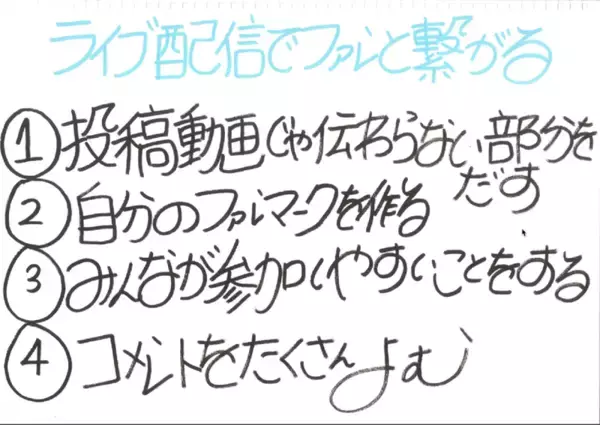 ライブ配信でファンと繋がる
① 投稿動画じゃ伝わらない部分を
だす
② 自分のファンマークを作る
③ みんなが参加しやすいことをする
④ コメントをたくさんよむ